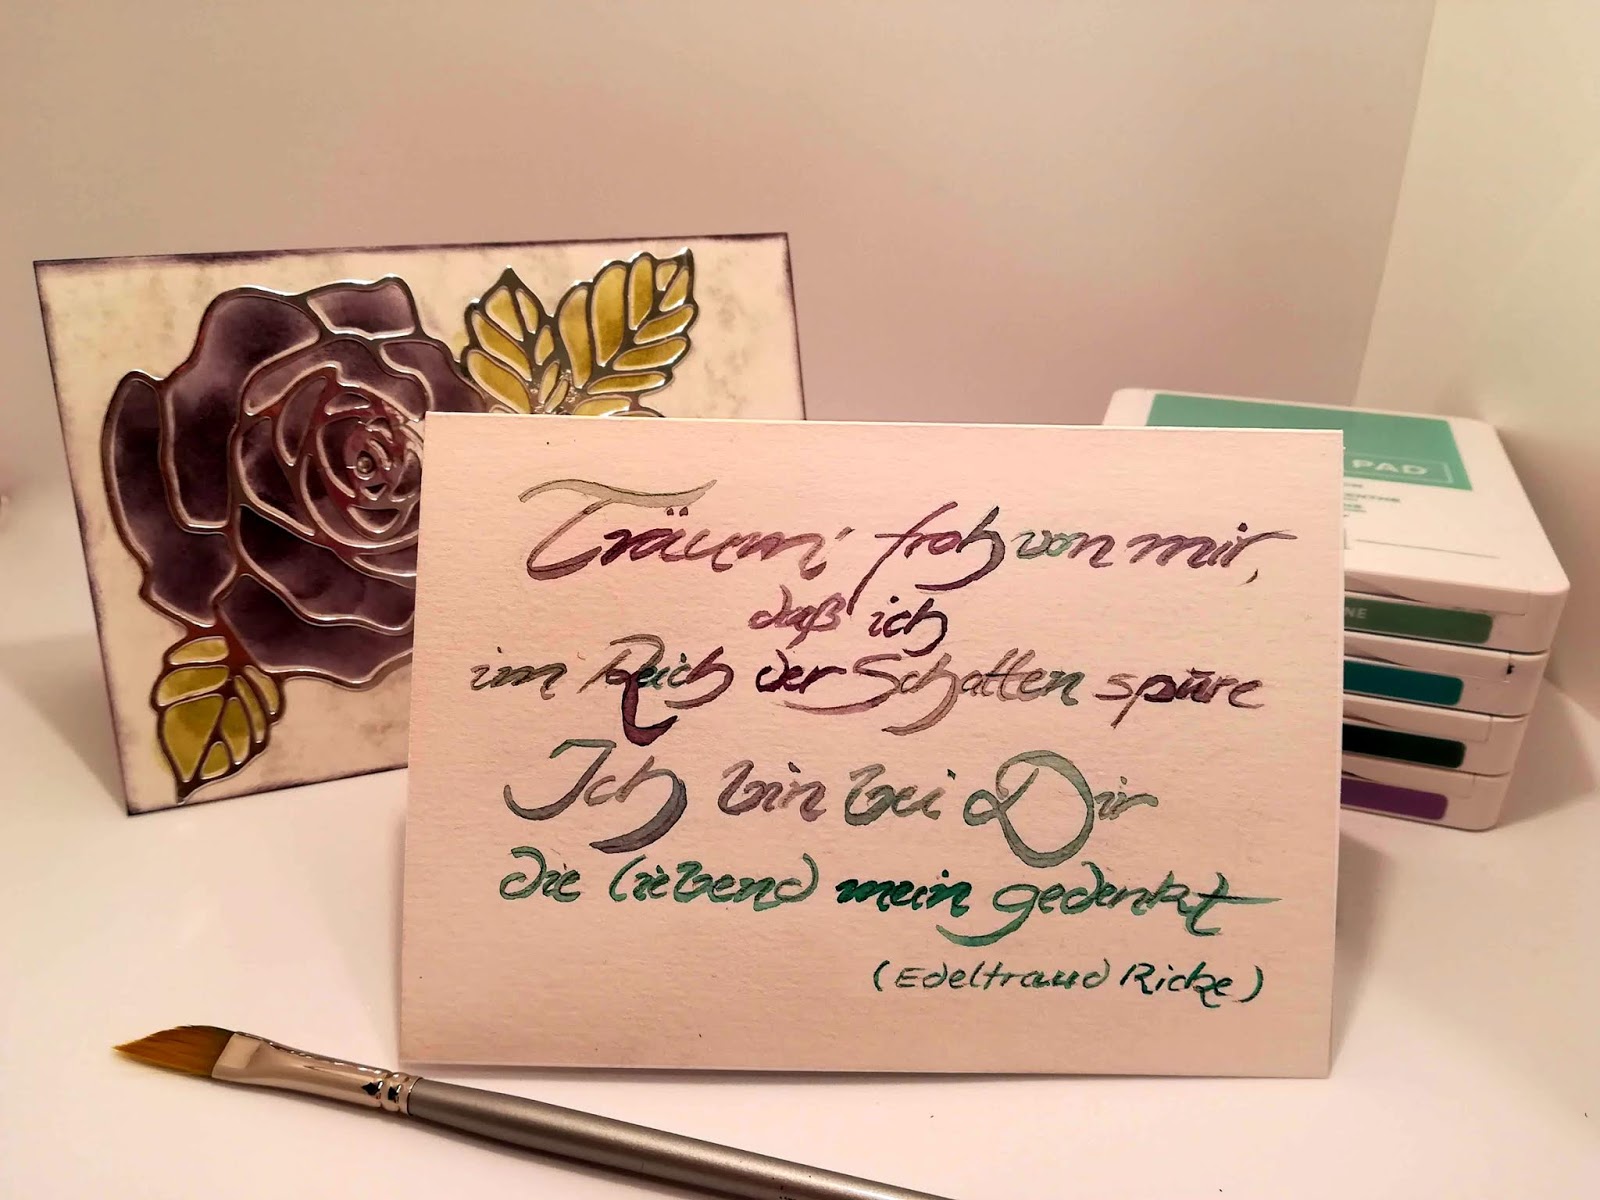 Träum' froh von mir,
daß ich
im Reich der Schatten spüre
Ich bin bei Dir
die liebend mein gedenkt
(Edeltraud Ricke)
PAD
NE